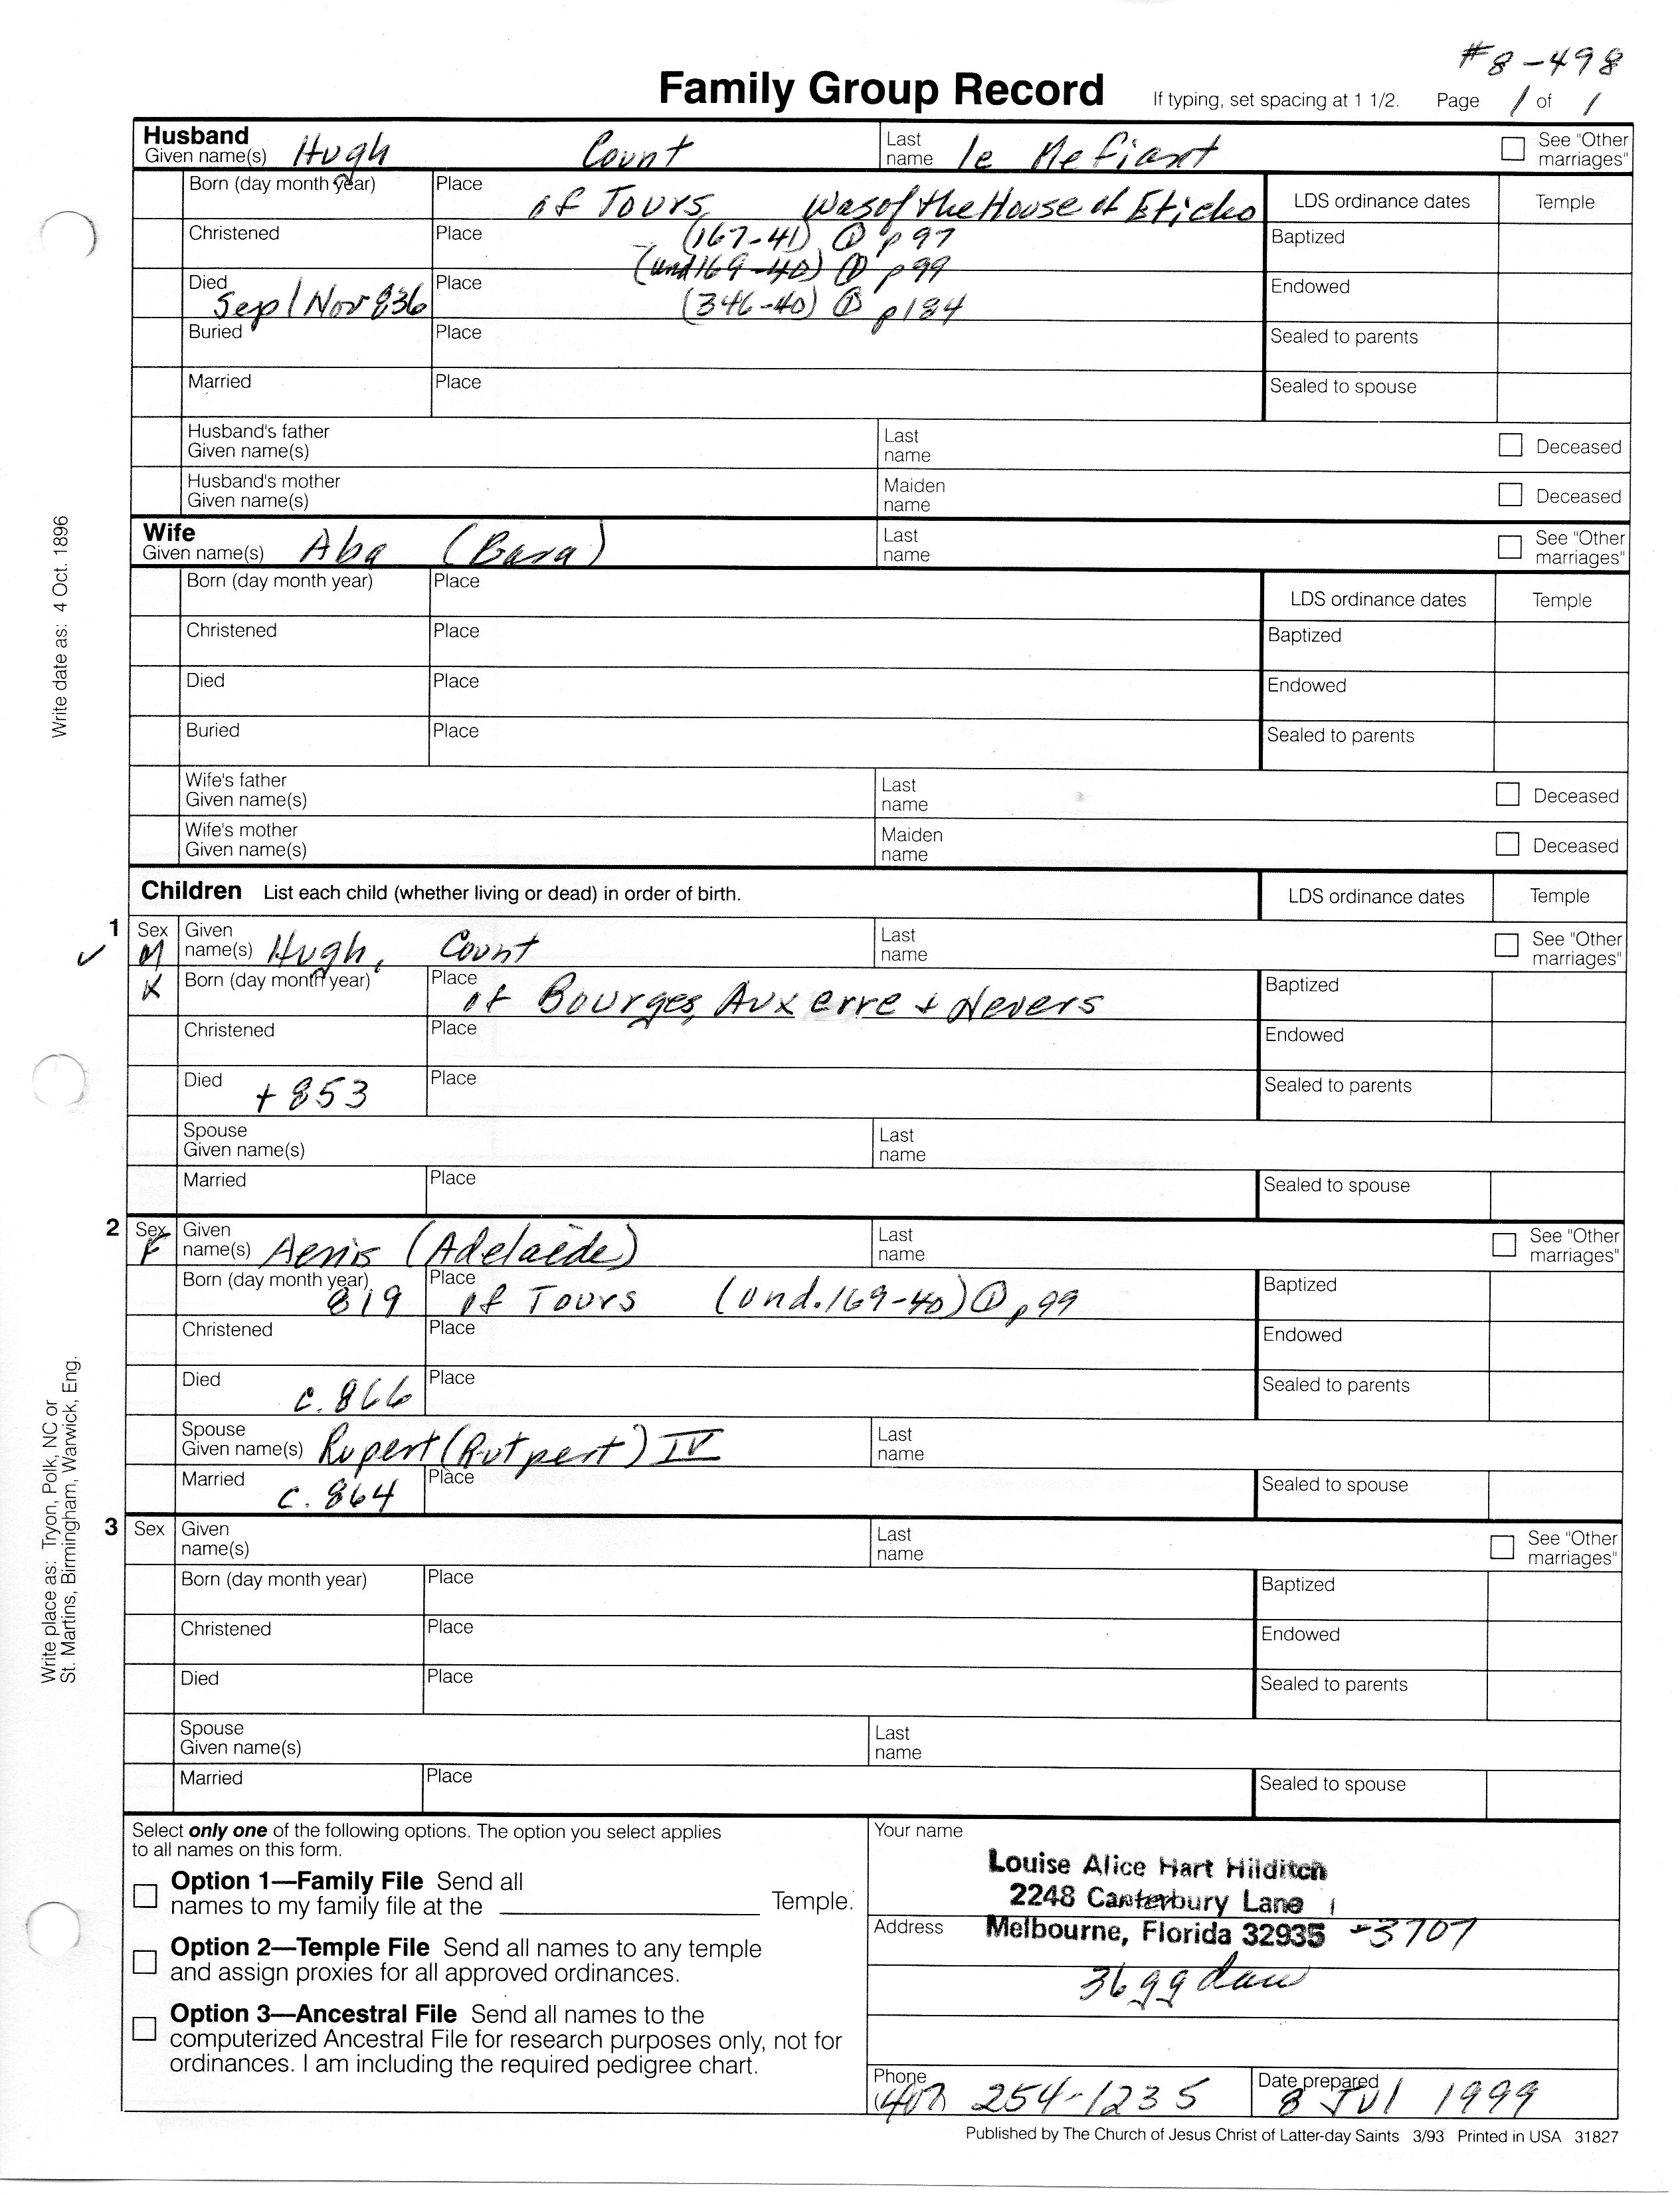 #8-498
Family Group Record If typing, set spacing at 1 1/2. Page 1 of 1
Husband
Given name(s) Hugh Count Last name le Mefiant See "Other marriages"
Born (day month year) Place of Tours, Was of the House of Eticho LDS ordinance dates Temple
Christened Place (167-41) ① p 97 Baptized
(und 169-40) ① p 99
Died Sep/Nov 836 Place (346-40) ① p 184 Endowed
Buried Place Sealed to parents
Married Place Sealed to spouse
Husband's father Given name(s) Last name Deceased
Husband's mother Given name(s) Maiden name Deceased
Wife
Given name(s) Aba (Bava) Last name See "Other marriages"
Born (day month year) Place LDS ordinance dates Temple
Christened Place Baptized
Died Place Endowed
Buried Place Sealed to parents
Wife's father Given name(s) Last name Deceased
Wife's mother Given name(s) Maiden name Deceased
Children List each child (whether living or dead) in order of birth. LDS ordinance dates Temple
1 Sex M Given name(s) Hugh, Count Last name See "Other marriages"
X Born (day month year) Place of Bourges, Auxerre + Nevers Baptized
Christened Place Endowed
Died + 853 Place Sealed to parents
Spouse Given name(s) Last name
Married Place Sealed to spouse
2 Sex F Given name(s) Aenis (Adelaide) Last name See "Other marriages"
Born (day month year) 819 Place of Tours (und. 169-40) ① p 99 Baptized
Christened Place Endowed
Died c. 866 Place Sealed to parents
Spouse Given name(s) Rupert (Rutpert) IV Last name
Married c. 864 Place Sealed to spouse
3 Sex Given name(s) Last name See "Other marriages"
Born (day month year) Place Baptized
Christened Place Endowed
Died Place Sealed to parents
Spouse Given name(s) Last name
Married Place Sealed to spouse
Select only one of the following options. The option you select applies
to all names on this form.
Option 1—Family File Send all
names to my family file at the Temple.
Option 2—Temple File Send all names to any temple
and assign proxies for all approved ordinances.
Option 3—Ancestral File Send all names to the
computerized Ancestral File for research purposes only, not for
ordinances. I am including the required pedigree chart.
Your name
Louise Alice Hart Hilditch
2248 Canterbury Lane
Address Melbourne, Florida 32935 -3707
36 gg dau
Phone (407) 254-1235 Date prepared 8 Jul 1999
Published by The Church of Jesus Christ of Latter-day Saints 3/93 Printed in USA 31827
Write date as: 4 Oct. 1896
Write place as: Tryon, Polk, NC or
St. Martins, Birmingham, Warwick, Eng.